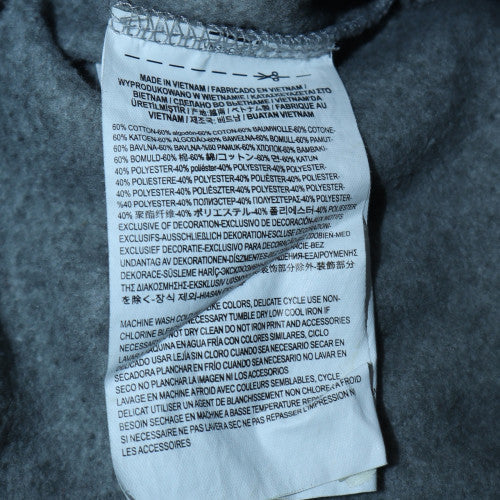 MADE IN VIETNAM / FABRICADO EN VIETNAM /
WYPRODUKOWANO W WIETNAMIE / ΚΑΤΑΣΚΕΥΑΖΕΤΑΙ ΣΤΟ
ΒΙΕΤΝΑΜ / СДЕЛАНО ВО ВЬЕТНАМЕ / VIETNAM'DA
ÜRETİLMİŞTİR / 产地: 越南 / ベトナム製 / FABRIQUE AU
VIETNAM / 제조국: 베트남 / BUATAN VIETNAM
60% COTTON-60% algodón-60% COTON-60% BAUMWOLLE-60% COTONE-
60% KATOEN-60% ALGODÃO-60% BAWEŁNA-60% BOMULL-60% PAMUT-
60% BAVLNA-60% BAVLNA-%60 PAMUK-60% ХЛОПОК-60% ΒΑΜΒΑΚΙ-
60% BOMULD-60% 棉-60% 綿/コットン-60% 면-60% KATUN
40% POLYESTER-40% poliéster-40% POLYESTER-40% POLYESTER-
40% POLIESTERE-40% POLYESTER-40% POLIÉSTER-40% POLIESTER-
40% POLYESTER-40% POLIÉSZTER-40% POLYESTER-40% POLYESTER-
%40 POLYESTER-40% ПОЛИЭСТЕР-40% ΠΟΛΥΕΣΤΕΡΑΣ-40% POLYESTER-
40% 聚酯纤维-40% ポリエステル-40% 폴리에스터-40% POLIESTER
EXCLUSIVE OF DECORATION-EXCLUSIVO DE DECORACIÓN-
EXCLUSIFS-AUSSCHLIEẞLICH DEKORATION-ESCLUSO
EXCLUSIEF DECORATIE-EXCLUSIVO PARA DECORAÇÃO
UNDANTAG AV DEKORATIONEN-DÍSZMENTES
DEKORACE-SÜSLEME HARİÇ-
ΤΗΣ ΔΙΑΚΟΣΜΗΣΗΣ-EKSKLUSIV 装饰部分除外-装飾部分
を除く-장식 제외-
MACHINE WASH COLD LIKE COLORS, DELICATE CYCLE USE NON-
CHLORINE BLEACH NECESSARY TUMBLE DRY LOW COOL IRON IF
NECESSARY DO NOT DRY CLEAN DO NOT IRON PRINT AND ACCESSORIES
LAVAR A MÁQUINA EN AGUA FRÍA CON COLORES SIMILARES, CICLO
DELICADO USAR LEJÍA SIN CLORO CUANDO SEA NECESARIO
SECADORA PLANCHAR EN FRÍO CUANDO SEA NECESARIO NO LAVAR EN
SECO NO PLANCHAR LA IMAGEN NI LOS ACCESORIOS
LAVAGE EN MACHINE A FROID AVEC COULEURS SEMBLABLES, CYCLE
DELICAT UTILISER UN AGENT DE BLANCHISSEMENT NON CHLORE A FROID
BESOIN SECHAGE EN MACHINE A BASSE TEMPERATURE REPASSER
SI NECESSAIRE NE PAS LAVER A SEC NE PAS REPASSER L'IMPRESSION NI
LES ACCESSOIRES